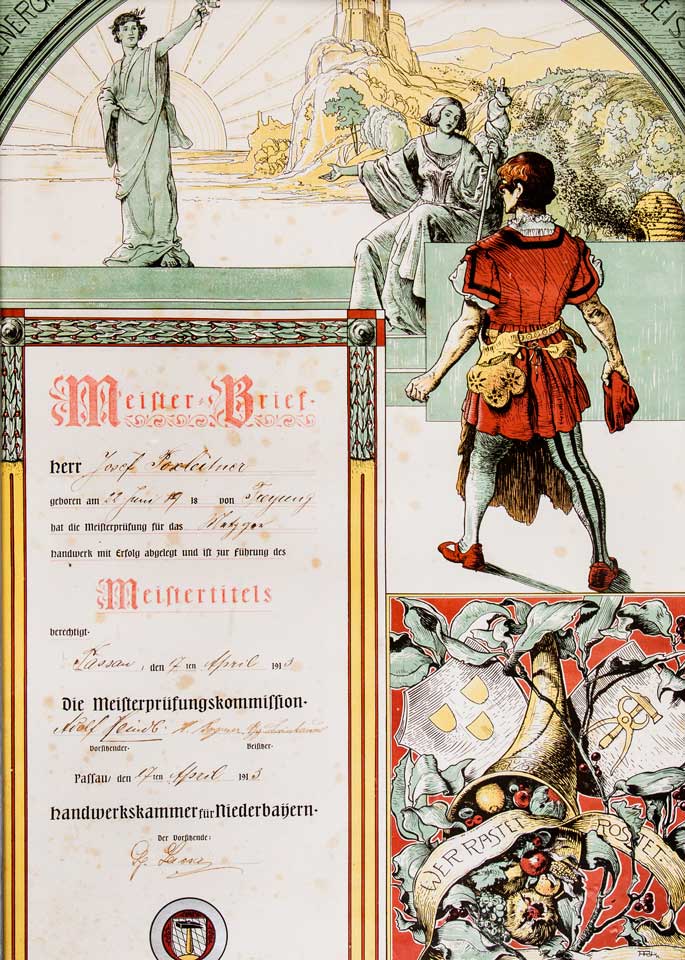 ENERGI
LEISS
Meister-Brief-
Herr Josef Poxleitner
geboren am 22 Juni 19 18 von Freyung
hat die Meisterprüfung für das Metzger
handwerk mit Erfolg abgelegt und ist zur Führung des
Meistertitels
berechtigt.
Passau, den 7ten April 1913
Die Meisterprüfungskommission.
Adolf
Vorsitzender. Beisitzer.
Passau, den 17ten April 1913
Handwerkskammer für Niederbayern.
der Vorsitzende:
WER RASTET ROSTET.